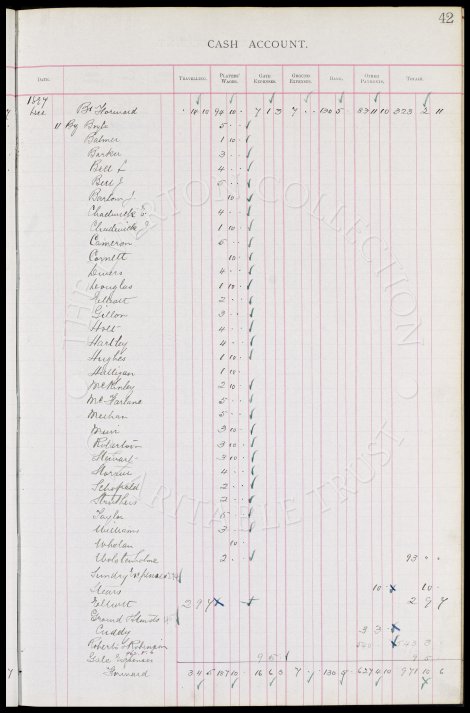 42
CASH ACCOUNT.
DATE. TRAVELLING. PLAYERS' WAGES. GATE EXPENSES. GROUND EXPENSES. BANK. OTHER PAYMENTS. TOTALS.
Bt Forward 10 10 90 10 7 1 3 7 130 5 10 323 2 11
11 By Boyle 5
Balmer 1 10
Barker 3
Bell L 4
Bell J 5
Barlow J 10
Chadwick E 4
Chadwick 1 10
Cameron 5
Cornett 10
Divers 4
Douglas 1 10
Elliott 2
Gillon 3
Holt 4
Hartley 4
Hughes 1 10
Halligan 1 10
McKinley 2 10
McFarlane 5
Meehan 5
Muir 3 10
Robertson 3 10
Stewart 3 10
Storrier 4
Schofield 2
Struthers 2
Taylor
Williams 3
Whelan 10
Wolstenholme 2 93
Sundry Expenses
Mears 10 10
Elliott 2 9 7 2 9 7
Ground
Cuddy 3 3
Roberts & Robinson
Gate Expenses 9 5 9 5
Forward 3 4 5 10 16 6 3 7 130 10 971 10 6